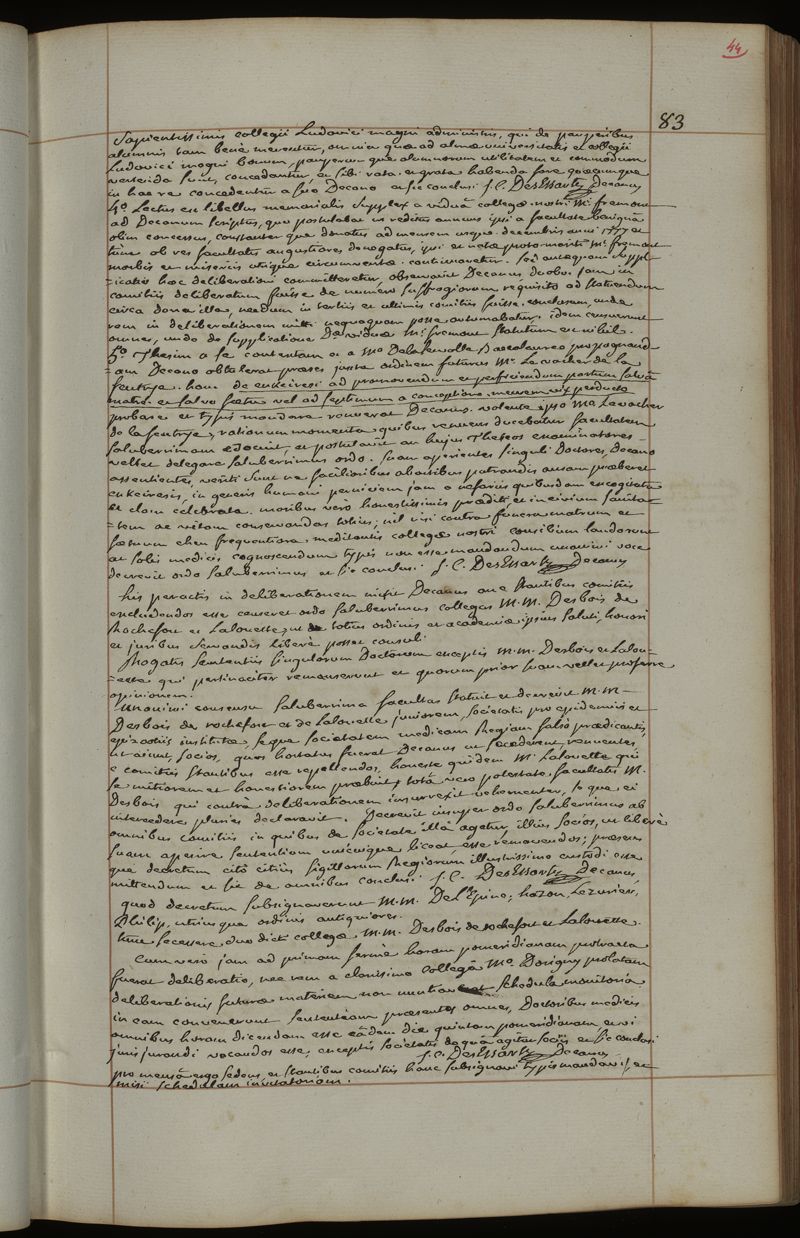 44
83
Sapientissimis collegii Ludovici magni administris, qui de pauperibus
alumnis tam benè merentur, omnia quæ ad almæ universitatis et collegii
Ludovici magni bonum, pauperum que alumnorum utilitatem et commodum
vertenda sunt, concedantur, et sibi rata et grata habenda fore quæcumque
in hac re concedentur a suo Decano et sic conclusi. J. C. DesEssartz Decanus
4.° Lectus est libellus memorialis supplex a viduâ collegæ nostri Mi. fremont
ad Decanum scriptus, quo postulabat ut reditus annuus ipsi a facultate benignâ
olim concessus, constanter que donatus ad mensem usque decembris anni 1777 et
tunc ob res facultatis angustiores denegatus, ipsi et natæ quoque Mi. fremont
morbis et miseriis utrique circumventæ continuaretur. Sed antequam suppli-
=catio hæc deliberationi committeretur, observavit Decanus duobus jam in
comitiis deliberatum fuisse de numero suffragiorum requisito ad statuendum
circa dona illa, necdum in tertiis et ultimis comitiis fuisse conclusum, unde
rem in deliberationem mitti nequaquam posse autumabatur. idem censuerunt
omnes, unde de supplicatione Dæ viduæ Mi. fremont statutum est nihil.
5.° Thesim a se contentam et a Mo Dalalewolle Baccalaureo propugnand
=am Decano obtulerat præses juxta ordinem futurus Mr. Levacher de la
feutrye. hanc de encheiresi ad promovendum et perficiendum partum salvâ
matre et salvo fœtu vel ad septimum a conceptione mensem vix perducto
probare et typis mandare renuerat Decanus. volente ipso Mo Levacher
de la feutrye, rationum momenta quibus renuens ducebatur facultatem
saluberrimam edocuit, et postulavit an hujus Theseos examinatores
vellet delegare saluberrimus ordo. suam aperientes singuli Doctores, Decano
assentientes, veriti sunt ne facilioribus abortibus patrandis ansam præberet
encheiresis, in generis humani perniciem jam a nefariis quibusdam excogitata
et clam celebrata. moribus vero honestissimis præditi, et in civium sanita-
=tem ac vitam conservandas totius; nil nisi contra funera matrum et
fœtuum eheu frequentiora meditantis collegæ nostri consilium laudarunt
at solis medicis cognoscendum typis non esse mandandum unanimi voce
decrevit ordo saluberrimus et sic conclusi. J. C. DesEssartz Decanus
his peractis in deliberationem misit Decanus an e stantibus comitiis
excludendos esse censeret ordo saluberrimus collegas M.M. Desbois de
Rochefort et Lalouette, ut totius ordinis et academiæ ipsius saluti, honori
et juribus servandis liberè posset consuli.
Rogatis sententiis singulorum Doctorum exceptis M.M. Desbois et Lalou=
=ette qui pertinaciter remanserunt et quorum prior suam vellet proferre
opinionem.
Unanimi consensu saluberrima facultas statuit et decrevit M.M.
Desbois de rochefort et de Lalouette juniorem, societatis pro epidemiis et
epizootiis institutæ, seque societatem medicam Regiam falsò prædicantis,
ut aiunt, socios, quos hortatus fuerat Decanus ut secederent, renuentes,
e comitiis stantibus esse repellendos, honeste quidem Mi. Lalouette qui
se mitiorem et honestiorem præbuit, totâ vero potestate facultatis Mi.
Desbois qui contra deliberationem insurrexit vehementer, se que ei
intercedere pluries declaravit. Decrevit insuper ordo saluberrimus ab
omnibus comitiis in quibus de societate illâ agetur, illius socios, ut liberè
suam aperire sententiam unicuique liceat, esse removendos; præsens
que decretum citò citius sigillorum Regiorum illustrissimo custodi esse
mittendum et sic de omnibus conclusi. J. C. DesEssartz Decanus,
quod decretum subsignaverunt M.M. De L'Epine; hazon, Lezurier,
Philip, utriusque ordinis antiquiores.
tunc secessere duo dicti collegæ M.M. Desbois de rochefort et Lalouette.
Cum vero jam ad primam fermè horam pomeridianam protracta
fuerat deliberatio, nec rem a clarissimo collegâ Mo Dorigny prolatam
deliberationis futuræ materiem non nuntiaverat schedula monitoria
in eam convenerunt sententiam præsentes omnes, Doctoribus medicis
omnibus horam dicendam esse eâdem die quintam pomeridianam, et vi
juris jurandi vocandos esse, exceptis societatis de quâ agitur sociis et sic conclusi
J. C. DesEssartz Decanus
pro mensâ ergo sedens, et stantibus comitiis hanc subsignavi typis mandavi, et
misi schedulam invitatoriam.